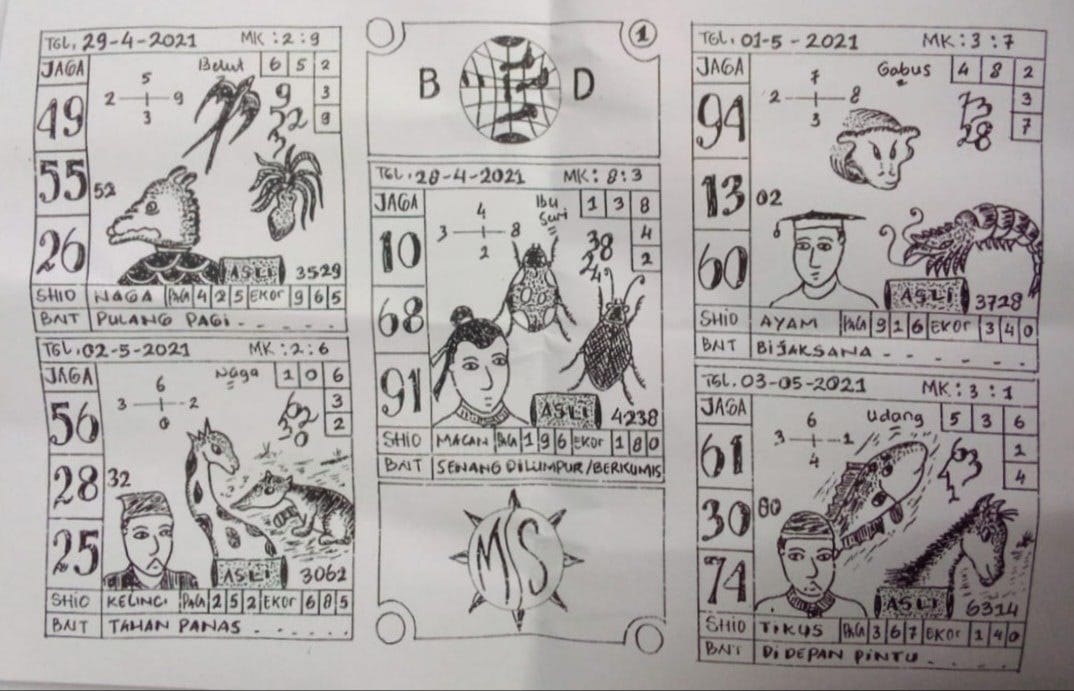 TGL, 29-4-2021 MK : 2 : 9
JAGA
5
2 9
3
Belut
6 5 2
3
9
9
52
3
49
55
52
26
ASLI 3529
SHIO NAGA PAGA 4 2 5 EKOR 9 6 5
BNT PULANG PAGI - - - - -
TGL, 02-5-2021 MK : 2 : 6
JAGA
6
3 2
0
Naga
1 0 6
3
2
62
30
56
28
32
25
ASLI 3062
SHIO KELINCI PAGA 2 5 2 EKOR 6 8 5
BNT TAHAN PANAS - - - - -
1
B D
TGL, 28-4-2021 MK : 8 : 3
JAGA
4
3 8
2
Ibu
Suri
1 3 8
4
2
38
24
10
68
91
ASLI 4238
SHIO MACAN PAGA 1 9 6 EKOR 1 8 0
BNT SENANG DILUMPUR/BERKUMIS
MS
TGL, 01-5-2021 MK : 3 : 7
JAGA
7
2 8
3
Gabus
4 8 2
3
7
73
28
94
13
02
60
ASLI 3728
SHIO AYAM PAGA 9 1 6 EKOR 3 4 0
BNT BIJAKSANA - - - - -
TGL. 03-05-2021 MK : 3 : 1
JAGA
6
3 1
4
Udang
5 3 6
1
4
61
30
80
74
ASLI 6314
SHIO TIKUS PAGA 3 6 7 EKOR 1 4 0
BNT DI DEPAN PINTU - - - -